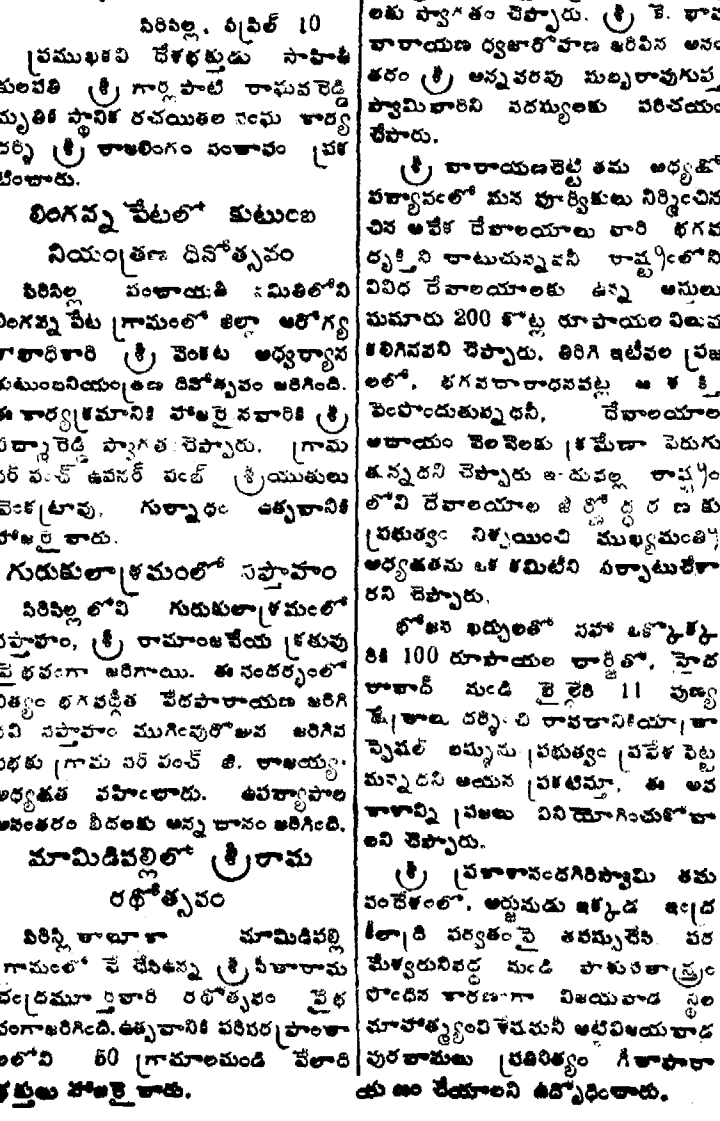 సిరిసిల్ల, ఏప్రిల్ 10
ప్రముఖకవి దేశభక్తుడు సాహితీ
కులపతి శ్రీ గార్లపాటి రాఘవరెడ్డి
మృతికి స్థానిక రచయితల సంఘ కార్య
దర్శి శ్రీ రాజలింగం సంతాపం ప్రక
టించారు.
లింగన్న పేటలో కుటుంబ
నియంత్రణ దినోత్సవం
సిరిసిల్ల పంచాయతీ సమితిలోని
లింగన్న పేట గ్రామంలో జిల్లా ఆరోగ్య
శాఖాధికారి శ్రీ వెంకట అధ్వర్యాన
కుటుంబనియంత్రణ దినోత్సవం జరిగింది.
ఈ కార్యక్రమానికి హాజరైనవారికి శ్రీ
రెడ్డి స్వాగతం చెప్పారు. గ్రామ
సర్పంచ్ ఉపసర్ పంచ్ శ్రీయుతులు
వెంకట్రావు, గుర్నాధం ఉత్సవానికి
హాజరైనారు.
గురుకులాశ్రమంలో సప్తాహం
సిరిసిల్లలోని గురుకులాశ్రమంలో
సప్తాహం, శ్రీ రామాంజనేయ క్రతువు
వైభవంగా జరిగాయి. ఈసందర్భంలో
నిత్యం భగవద్గీత వేదపారాయణ జరిగి
నవి సప్తాహం ముగింపురోజున జరిగిన
సభకు గ్రామ సర్పంచ్ జి. రాజయ్య
అధ్యక్షత వహించారు. ఉపన్యాసాల
అనంతరం బీదలకు అన్నదానం జరిగింది.
మామిడిపల్లిలో శ్రీరామ
రథోత్సవం
సిరిసిల్ల తాలూకా మామిడిపల్లి
గ్రామంలో వే చేసిఉన్న శ్రీ సీతారామ
చంద్రమూర్తివారి రథోత్సవం వైభ
వంగాజరిగింది. ఉత్సవానికి పరిసర ప్రాంతా
లలోని 60 గ్రామాలనుండి వేలాది
భక్తులు హాజరైనారు.
లకు స్వాగతం చెప్పారు. శ్రీ కె.
నారాయణ ధ్వజారోహణ జరిపిన అనం
తరం శ్రీ అన్నవరపు సుబ్బరావుగుప్త
స్వామివారిని సదస్యులకు పరిచయం
చేసారు.
శ్రీ నారాయణశెట్టి తమ అధ్యక్షో
పన్యాసంలో మన పూర్వికులు నిర్మించిన
చిన అనేక దేవాలయాలు వారి భగవ
ద్భక్తిని చాటుచున్నవనీ రాష్ట్రంలోని
వివిధ దేవాలయాలకు ఉన్న ఆస్తులు
సుమారు 200 కోట్ల రూపాయల విలువ
కలిగినవని చెప్పారు. తిరిగి ఇటీవల ప్రజ
లలో, భగవదారాధనవట్ల ఆ శక్తి
పెంపొందుతున్నదనీ, దేవాలయాల
ఆదాయం నెలనెలకు క్రమేణా పెరుగు
తున్నదని చెప్పారు ఇందువల్ల రాష్ట్రం
లోని దేవాలయాల జీర్ణోద్ధరణకు
ప్రభుత్వం నిశ్చయించి ముఖ్యమంత్రి
అధ్యక్షతను ఒక కమిటీని ఏర్పాటుచేశా
రని చెప్పారు.
భోజన ఖర్చులతో సహా ఒక్కొక్క
రికి 100 రూపాయల చార్జీతో, హైద
రాబాద్ నుండి బైల్దేరి 11 పుణ్య
క్షేత్రాలు దర్శించి రావడానికియాత్రా
స్పెషల్ బస్సును ప్రభుత్వం ప్రవేశ పెట్ట
నున్నదని ఆయన ప్రకటిస్తూ, ఈ అవ
కాశాన్ని ప్రజలు వినియోగించుకోవా
లని చెప్పారు.
శ్రీ ప్రకాశానందగిరిస్వామి తమ
సందేశంలో, అర్జునుడు ఇక్కడ ఇంద్ర
కీలాద్రి పర్వతంపై తపస్సుచేసి పర
మేశ్వరునివద్ద నుండి పాశుపతాస్త్రం
పొందిన కారణంగా విజయవాడ స్థల
మాహాత్మ్యంవిశేషమనీ అట్టివిజయవాడ
పురవాసులు ప్రతినిత్యం గీతాపారా
యణం చేయాలని ఉద్బోధించారు.